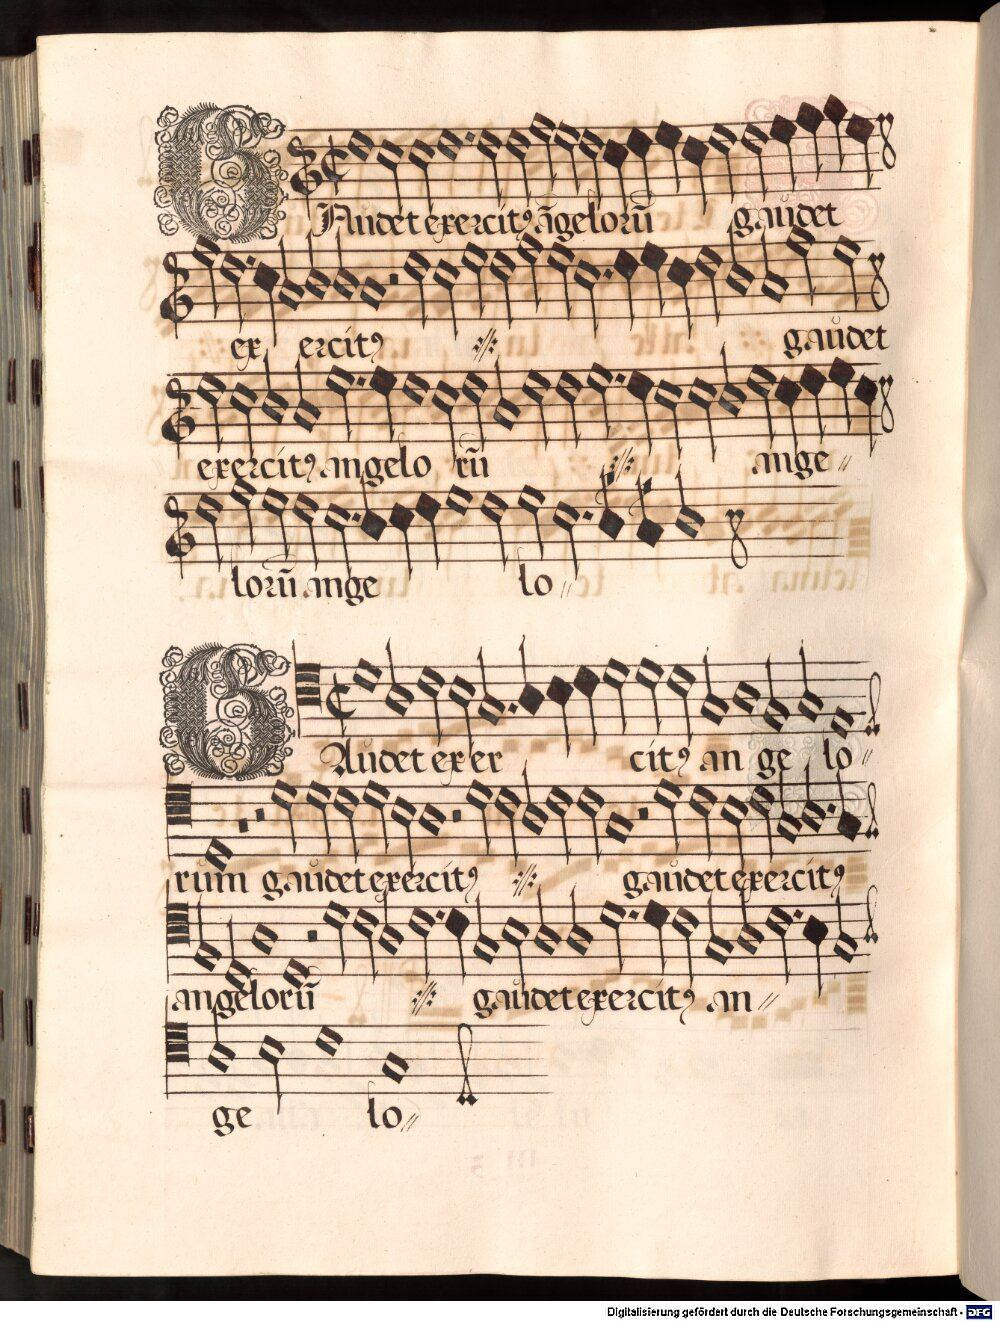 GAudet exercitꝰ āgelorū gaudet
ex ercitꝰ ·//· gaudet
exercitꝰ angelo rū ·//· ange
lorū ange lo
GAudet exer citꝰ an ge lo
rum gaudet exercitꝰ ·//· gaudet exercitꝰ
angelorū ·//· gaudet exercitꝰ an
ge lo
Digitalisierung gefördert durch die Deutsche Forschungsgemeinschaft - DFG